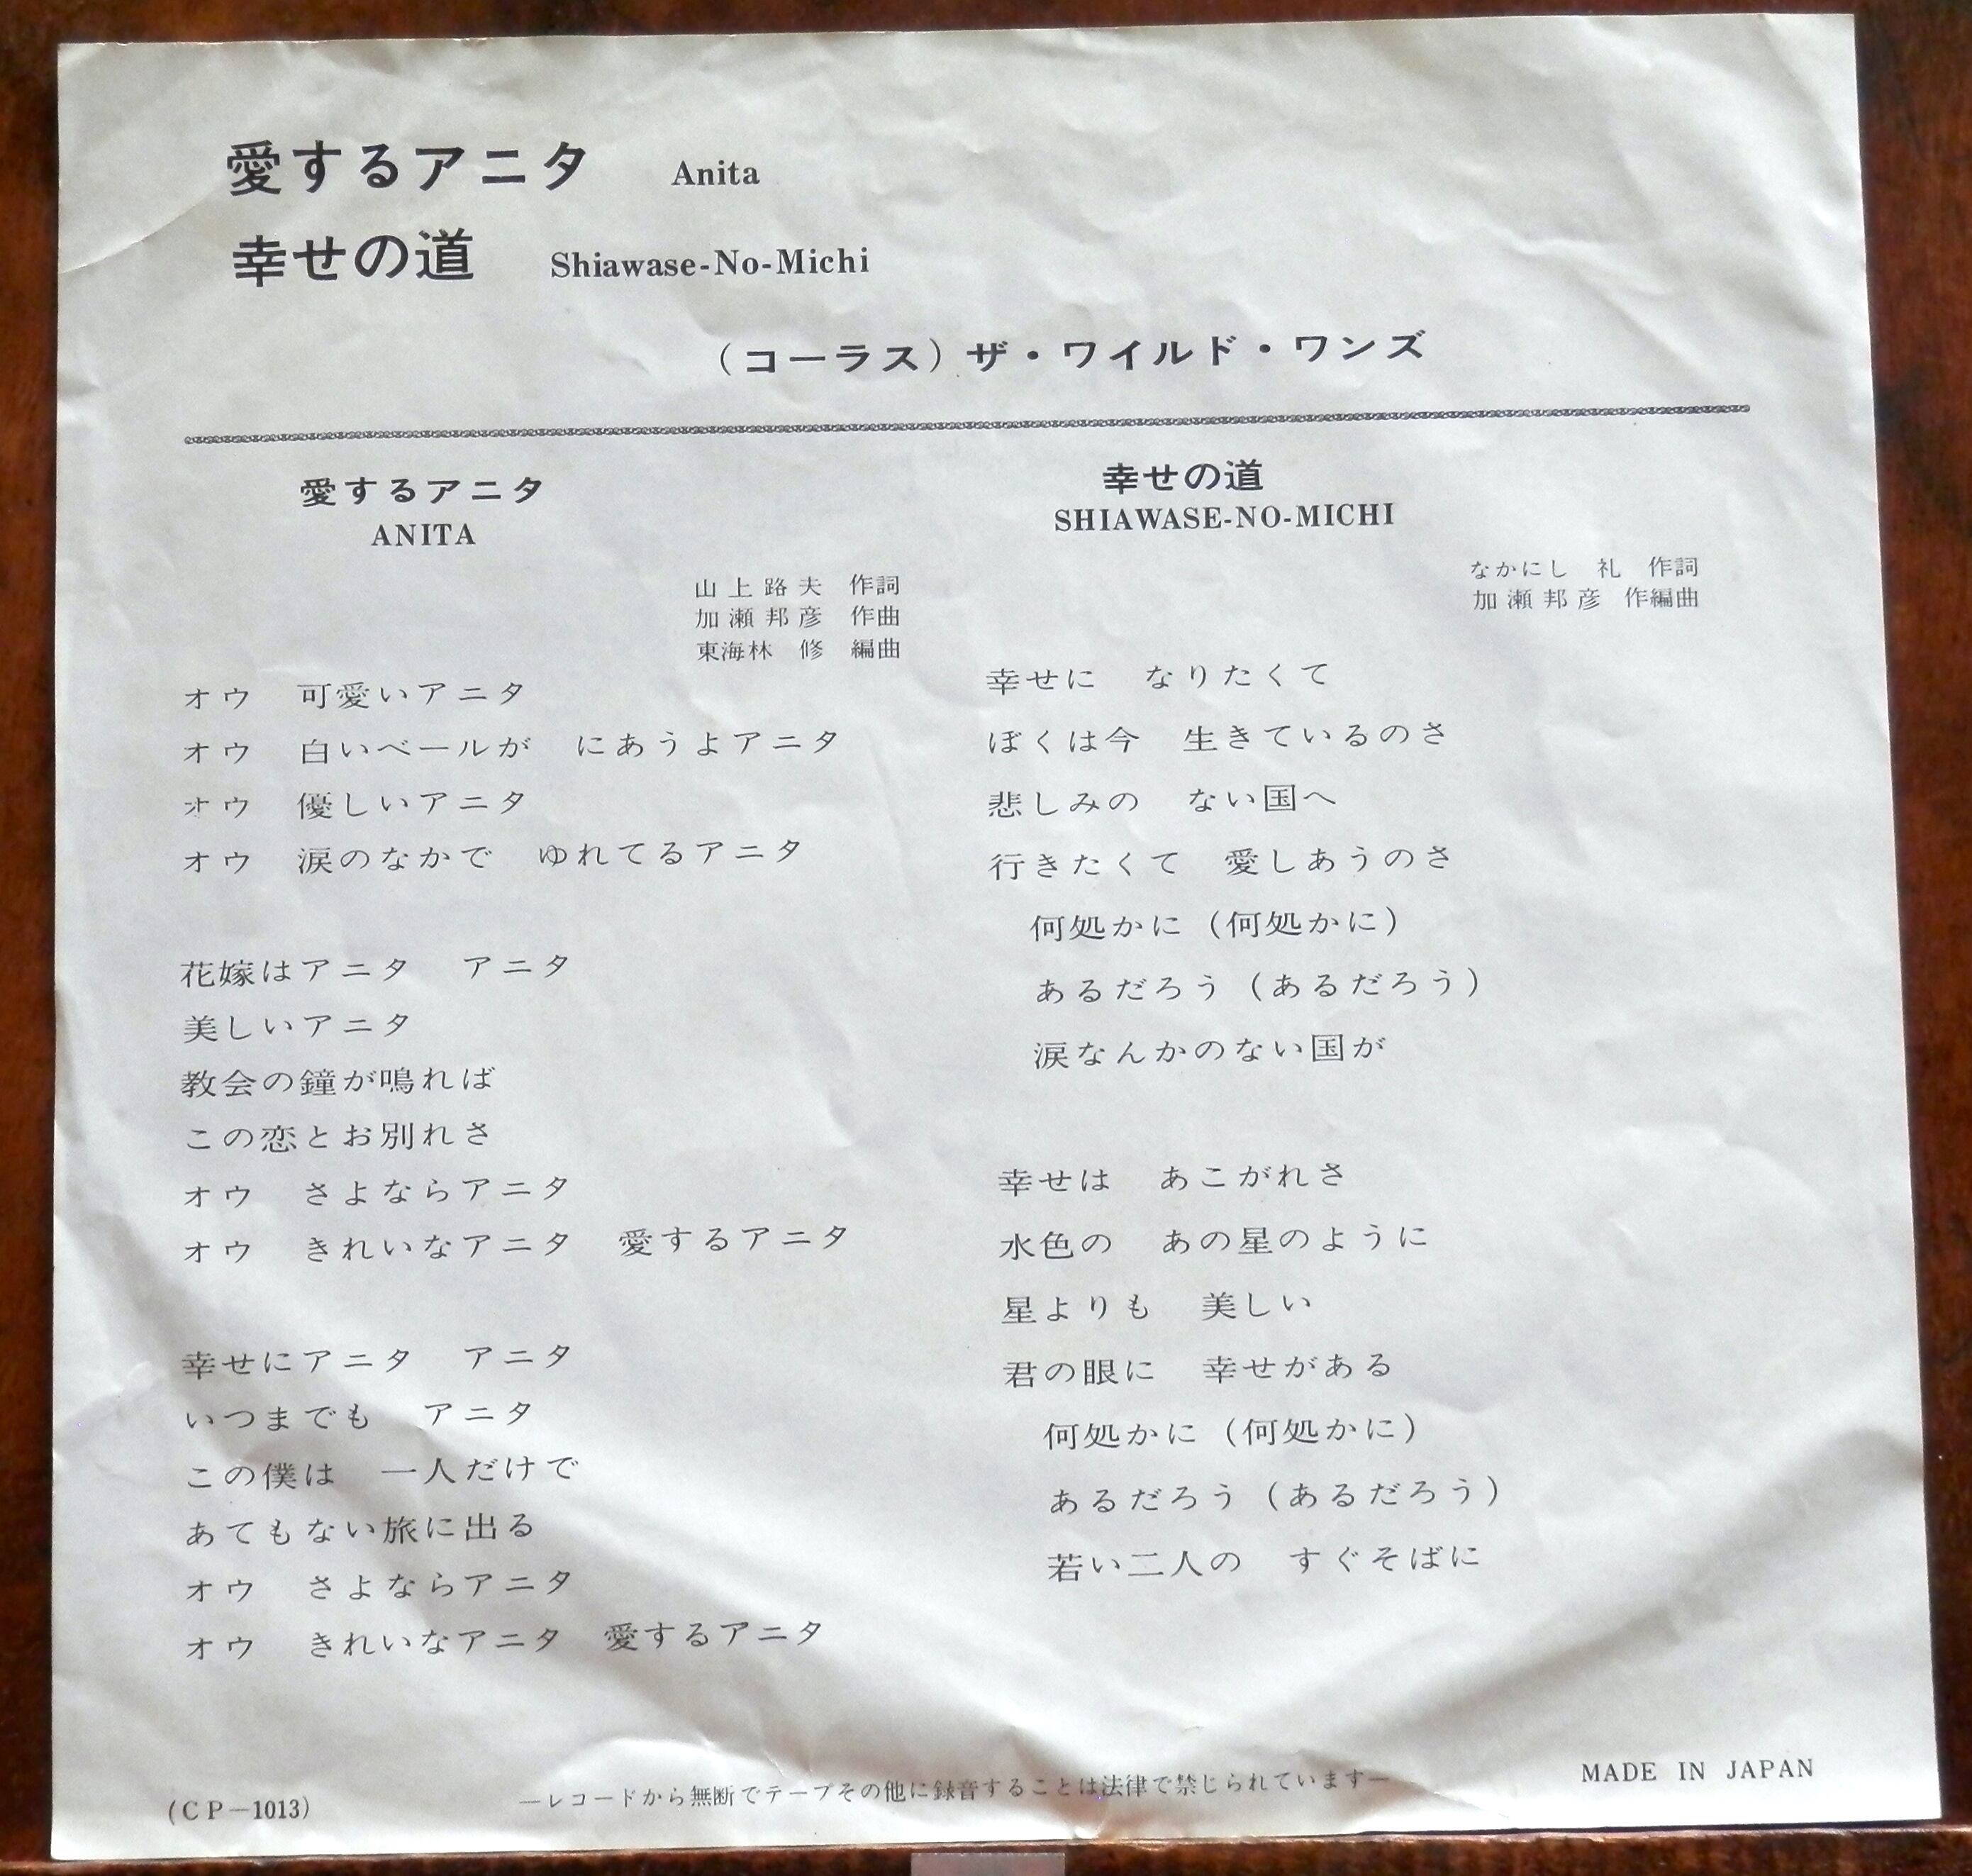 愛するアニタ　Anita
幸せの道　Shiawase-No-Michi
（コーラス）ザ・ワイルド・ワンズ
愛するアニタ
ANITA
山上路夫　作詞
加瀬邦彦　作曲
東海林　修　編曲
オウ　可愛いアニタ
オウ　白いベールが　にあうよアニタ
オウ　優しいアニタ
オウ　涙のなかで　ゆれてるアニタ
花嫁はアニタ　アニタ
美しいアニタ
教会の鐘が鳴れば
この恋とお別れさ
オウ　さよならアニタ
オウ　きれいなアニタ　愛するアニタ
幸せにアニタ　アニタ
いつまでも　アニタ
この僕は　一人だけで
あてもない旅に出る
オウ　さよならアニタ
オウ　きれいなアニタ　愛するアニタ
幸せの道
SHIAWASE-NO-MICHI
なかにし　礼　作詞
加瀬邦彦　作編曲
幸せに　なりたくて
ぼくは今　生きているのさ
悲しみの　ない国へ
行きたくて　愛しあうのさ
何処かに（何処かに）
あるだろう（あるだろう）
涙なんかのない国が
幸せは　あこがれさ
水色の　あの星のように
星よりも　美しい
君の眼に　幸せがある
何処かに（何処かに）
あるだろう（あるだろう）
若い二人の　すぐそばに
(CP－1013)
―レコードから無断でテープその他に録音することは法律で禁じられています―
MADE IN JAPAN